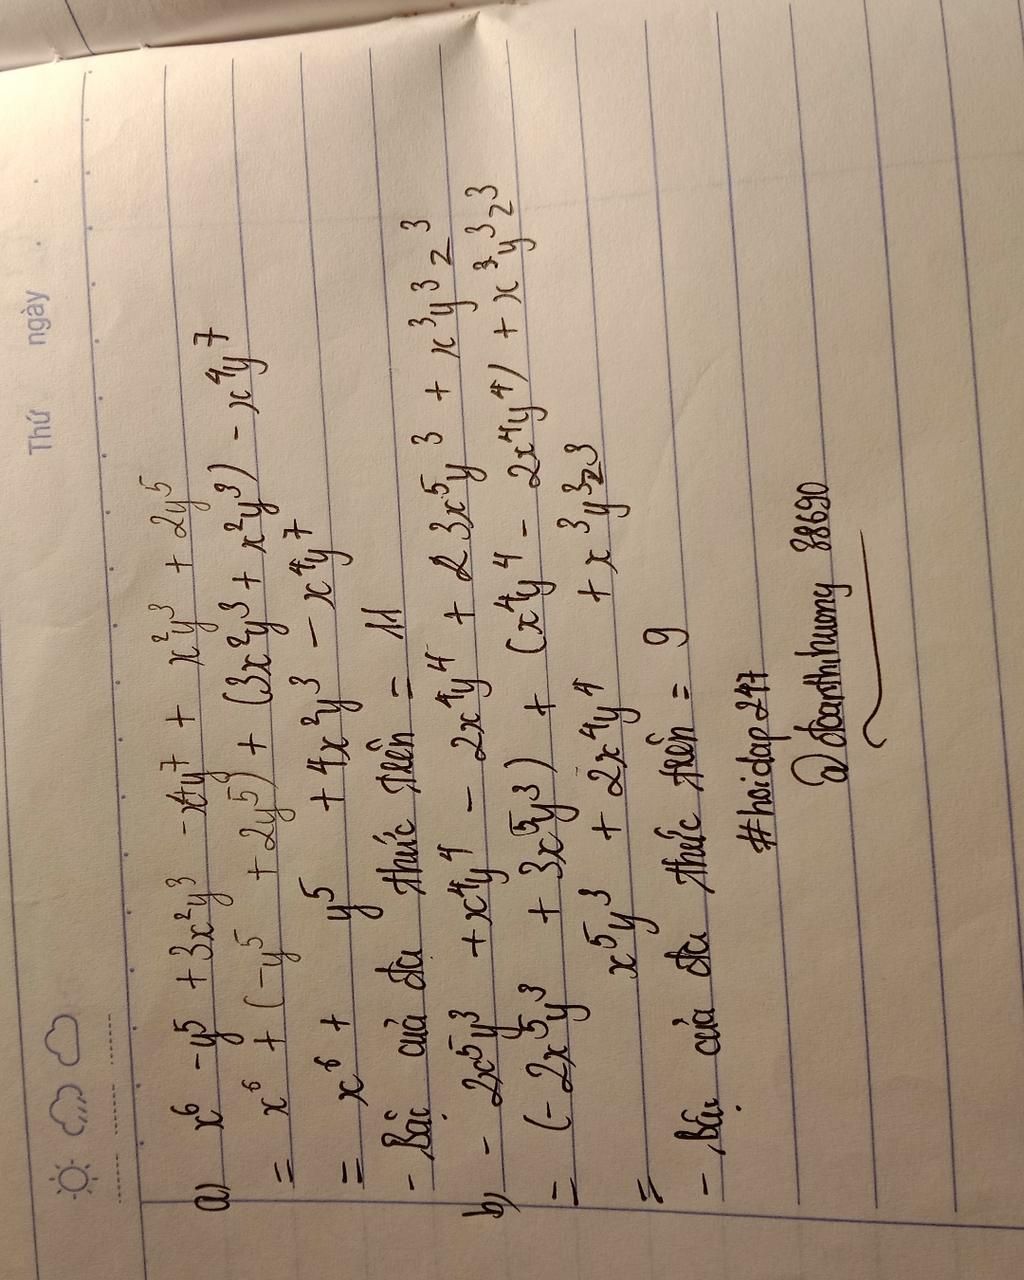 Thứ ngày
a) x⁶ - y⁵ + 3x²y³ - x⁴y⁷ + x²y³ + 2y⁵
= x⁶ + (-y⁵ + 2y⁵) + (3x²y³ + x²y³) - x⁴y⁷
= x⁶ + y⁵ + 4x²y³ - x⁴y⁷
- Bậc của đa thức trên = 11
b) - 2x⁵y³ + x⁴y⁴ - 2x⁴y⁴ + 3x⁵y³ + x³y³z³
= (- 2x⁵y³ + 3x⁵y³) + (x⁴y⁴ - 2x⁴y⁴) + x³y³z³
= x⁵y³ + 2x⁴y⁴ + x³y³z³
- Bậc của đa thức trên = 9
#hoidap247
@doanthihuong88690